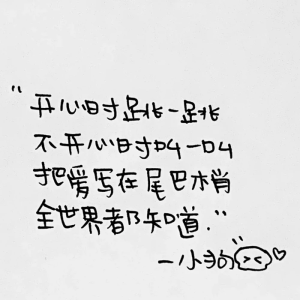 "开心时跳一跳
不开心时叫一叫
把爱写在尾巴梢
全世界都知道."
—小狗